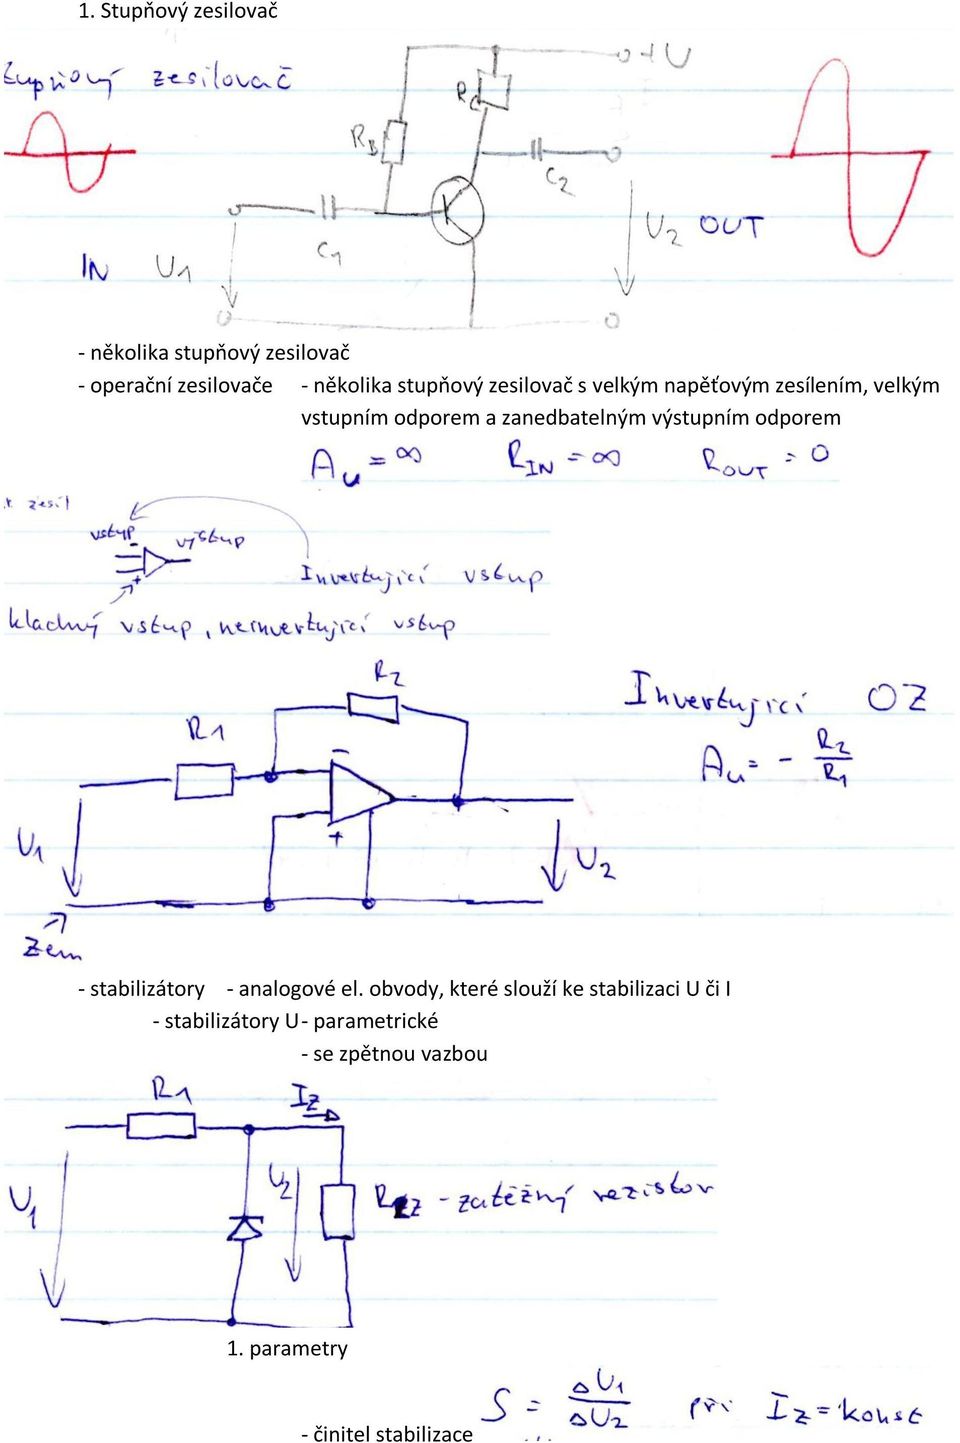 1. Stupňový zesilovač
tupňový zesilovač
+U
RC
RB
C2
C1
U2 OUT
IN U1
- několika stupňový zesilovač
- operační zesilovače - několika stupňový zesilovač s velkým napěťovým zesílením, velkým
vstupním odporem a zanedbatelným výstupním odporem
Au = ∞ RIN = ∞ ROUT = 0
zesil
vstup výstup
-
+
Invertující vstup
kladný vstup, neinvertující vstup
R2
Invertující OZ
R1
Au = - R2/R1
-
+
U1
U2
Zem
- stabilizátory - analogové el. obvody, které slouží ke stabilizaci U či I
- stabilizátory U - parametrické
- se zpětnou vazbou
R1 Iz
U2
U1
Rz - zatěžný rezistor
1. parametry
S = ΔU1/ΔU2 při Iz = konst
- činitel stabilizace